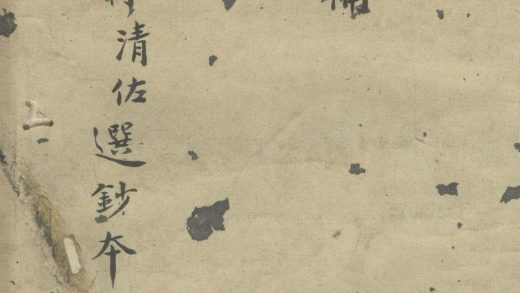 清佐選鈔本
上